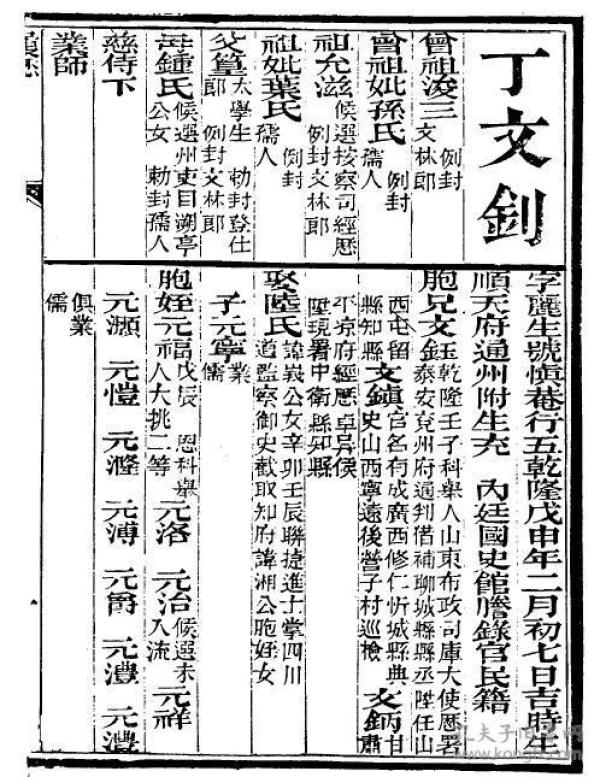 丁文釗
曾祖浚三 例封文林郎
曾祖妣孫氏 例封孺人
祖允滋 候選按察司經歷 例封文林郎
祖妣葉氏 例封孺人
父篁 太學生 勅封登仕郎 例封文林郎
母鍾氏 候選州吏目溯亭公女 勅封孺人
慈侍下
業師
字麗生號慎菴行五乾隆戊申年二月初七日吉時生
順天府通州附生充 內廷國史館謄錄官民籍
胞兄文鈺 乾隆壬子科舉人山東布政司庫大使歷署泰安兗州府通判借補聊城縣縣丞陞任山西屯留縣知縣 文鎮 官名有成廣西修仁忻城縣典史山西寧遠後營子村巡檢 文鈵 甘肅平凉府經歷卓异候陞現署中衛縣知縣
娶陸氏 諱峩公女辛卯壬辰聯捷進士掌四川道監察御史截取知府諱湘公胞姪女
子元寧 業儒
胞姪元福 戊辰 恩科舉人大挑二等 元洛 元治 候選未入流 元祥
元灝 元愷 元溥 元爵 元灃
俱業儒
孔夫子旧书网